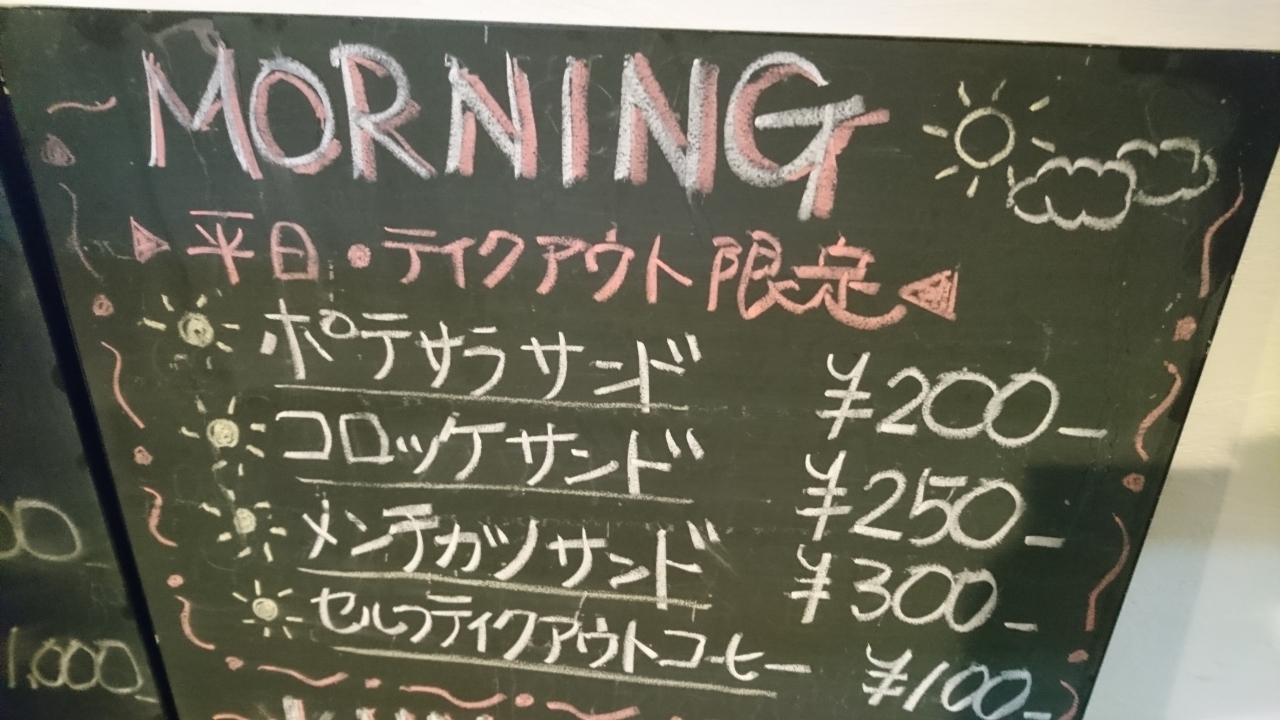 MORNING
平日・テイクアウト限定
ポテサラサンド ¥200-
コロッケサンド ¥250-
メンチカツサンド ¥300-
セルフテイクアウトコーヒー ¥100-
00
1,000-